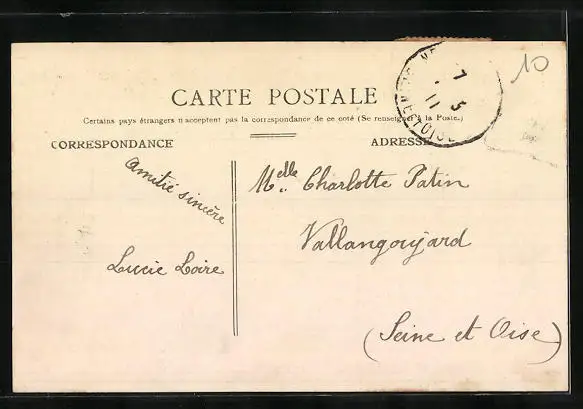 CARTE POSTALE
Certains pays étrangers n'acceptent pas la correspondance de ce coté (Se renseigner à la Poste.)
CORRESPONDANCE
ADRESSE
Amitié sincère
Lucie Loire
Melle Charlotte Patin
Vallangoujard
(Seine et Oise)
7
5
11
10